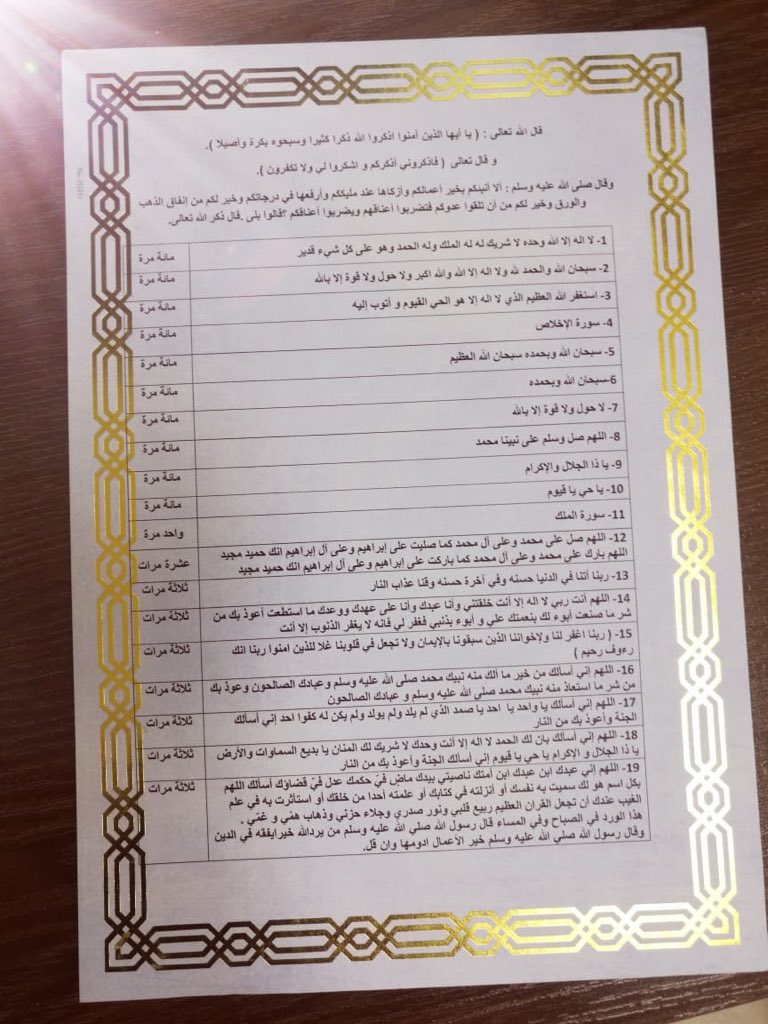 قال الله تعالى : ( يا أيها الذين آمنوا اذكروا الله ذكرا كثيرا وسبحوه بكرة وأصيلا ).
و قال تعالى ( فاذكروني أذكركم و اشكروا لي ولا تكفرون ).
وقال صلى الله عليه وسلم : ألا أنبئكم بخير أعمالكم وأزكاها عند مليككم وأرفعها في درجاتكم وخير لكم من إنفاق الذهب
والورق وخير لكم من أن تلقوا عدوكم فتضربوا أعناقهم ويضربوا أعناقكم ؟قالوا بلى .قال ذكر الله تعالى.
1- لا اله إلا الله وحده لا شريك له له الملك وله الحمد وهو على كل شيء قدير مائة مرة
2- سبحان الله والحمد لله ولا اله إلا الله والله اكبر ولا حول ولا قوة إلا بالله مائة مرة
3- استغفر الله العظيم الذي لا اله إلا هو الحي القيوم و أتوب إليه مائة مرة
4- سورة الإخلاص مائة مرة
5- سبحان الله وبحمده سبحان الله العظيم مائة مرة
6-سبحان الله وبحمده مائة مرة
7- لا حول ولا قوة إلا بالله مائة مرة
8- اللهم صل وسلم على نبينا محمد مائة مرة
9- يا ذا الجلال والإكرام مائة مرة
10- يا حي يا قيوم مائة مرة
11- سورة الملك واحد مرة
12- اللهم صل على محمد وعلى آل محمد كما صليت على إبراهيم وعلى آل إبراهيم انك حميد مجيد
اللهم بارك على محمد وعلى آل محمد كما باركت على إبراهيم وعلى آل إبراهيم انك حميد مجيد عشرة مرات
13- ربنا أتنا في الدنيا حسنه وفي آخرة حسنه وقنا عذاب النار ثلاثة مرات
14- اللهم أنت ربي لا اله إلا أنت خلقتني وأنا عبدك وأنا على عهدك ووعدك ما استطعت أعوذ بك من
شر ما صنعت أبوء لك بنعمتك علي و أبوء بذنبي فغفر لي فانه لا يغفر الذنوب إلا أنت ثلاثة مرات
15- ( ربنا اغفر لنا ولإخواننا الذين سبقونا بالإيمان ولا تجعل في قلوبنا غلا للذين امنوا ربنا انك
رءوف رحيم ) ثلاثة مرات
16- اللهم إني أسألك من خير ما ألك منه نبيك محمد صلى الله عليه وسلم وعبادك الصالحون وعوذ بك
من شر ما استعاذ منه نبيك محمد صلى الله عليه وسلم و عبادك الصالحون ثلاثة مرات
17- اللهم إني أسألك يا واحد يا احد يا صمد الذي لم يلد ولم يولد ولم يكن له كفوا احد إني أسألك
الجنة وأعوذ بك من النار ثلاثة مرات
18- اللهم إني أسألك بان لك الحمد لا اله إلا أنت وحدك لا شريك لك المنان يا بديع السماوات والأرض
يا ذا الجلال و الإكرام يا حي يا قيوم إني أسألك الجنة وأعوذ بك من النار ثلاثة مرات
19- اللهم إني عبدك ابن عبدك ابن أمتك ناصيتي بيدك ماض فيّ حكمك عدل فيّ قضاؤك أسألك اللهم
بكل اسم هو لك سميت به نفسك أو أنزلته في كتابك أو علمته أحدا من خلقك أو استأثرت به في علم
الغيب عندك أن تجعل القران العظيم ربيع قلبي ونور صدري وجلاء حزني وذهاب همّي و غمّي . ثلاثة مرات
هذا الورد في الصباح وفي المساء قال رسول الله صلي الله عليه وسلم من يردالله خيرايفقه في الدين
وقال رسول الله صلي الله عليه وسلم خير الأعمال ادومها وان قل.